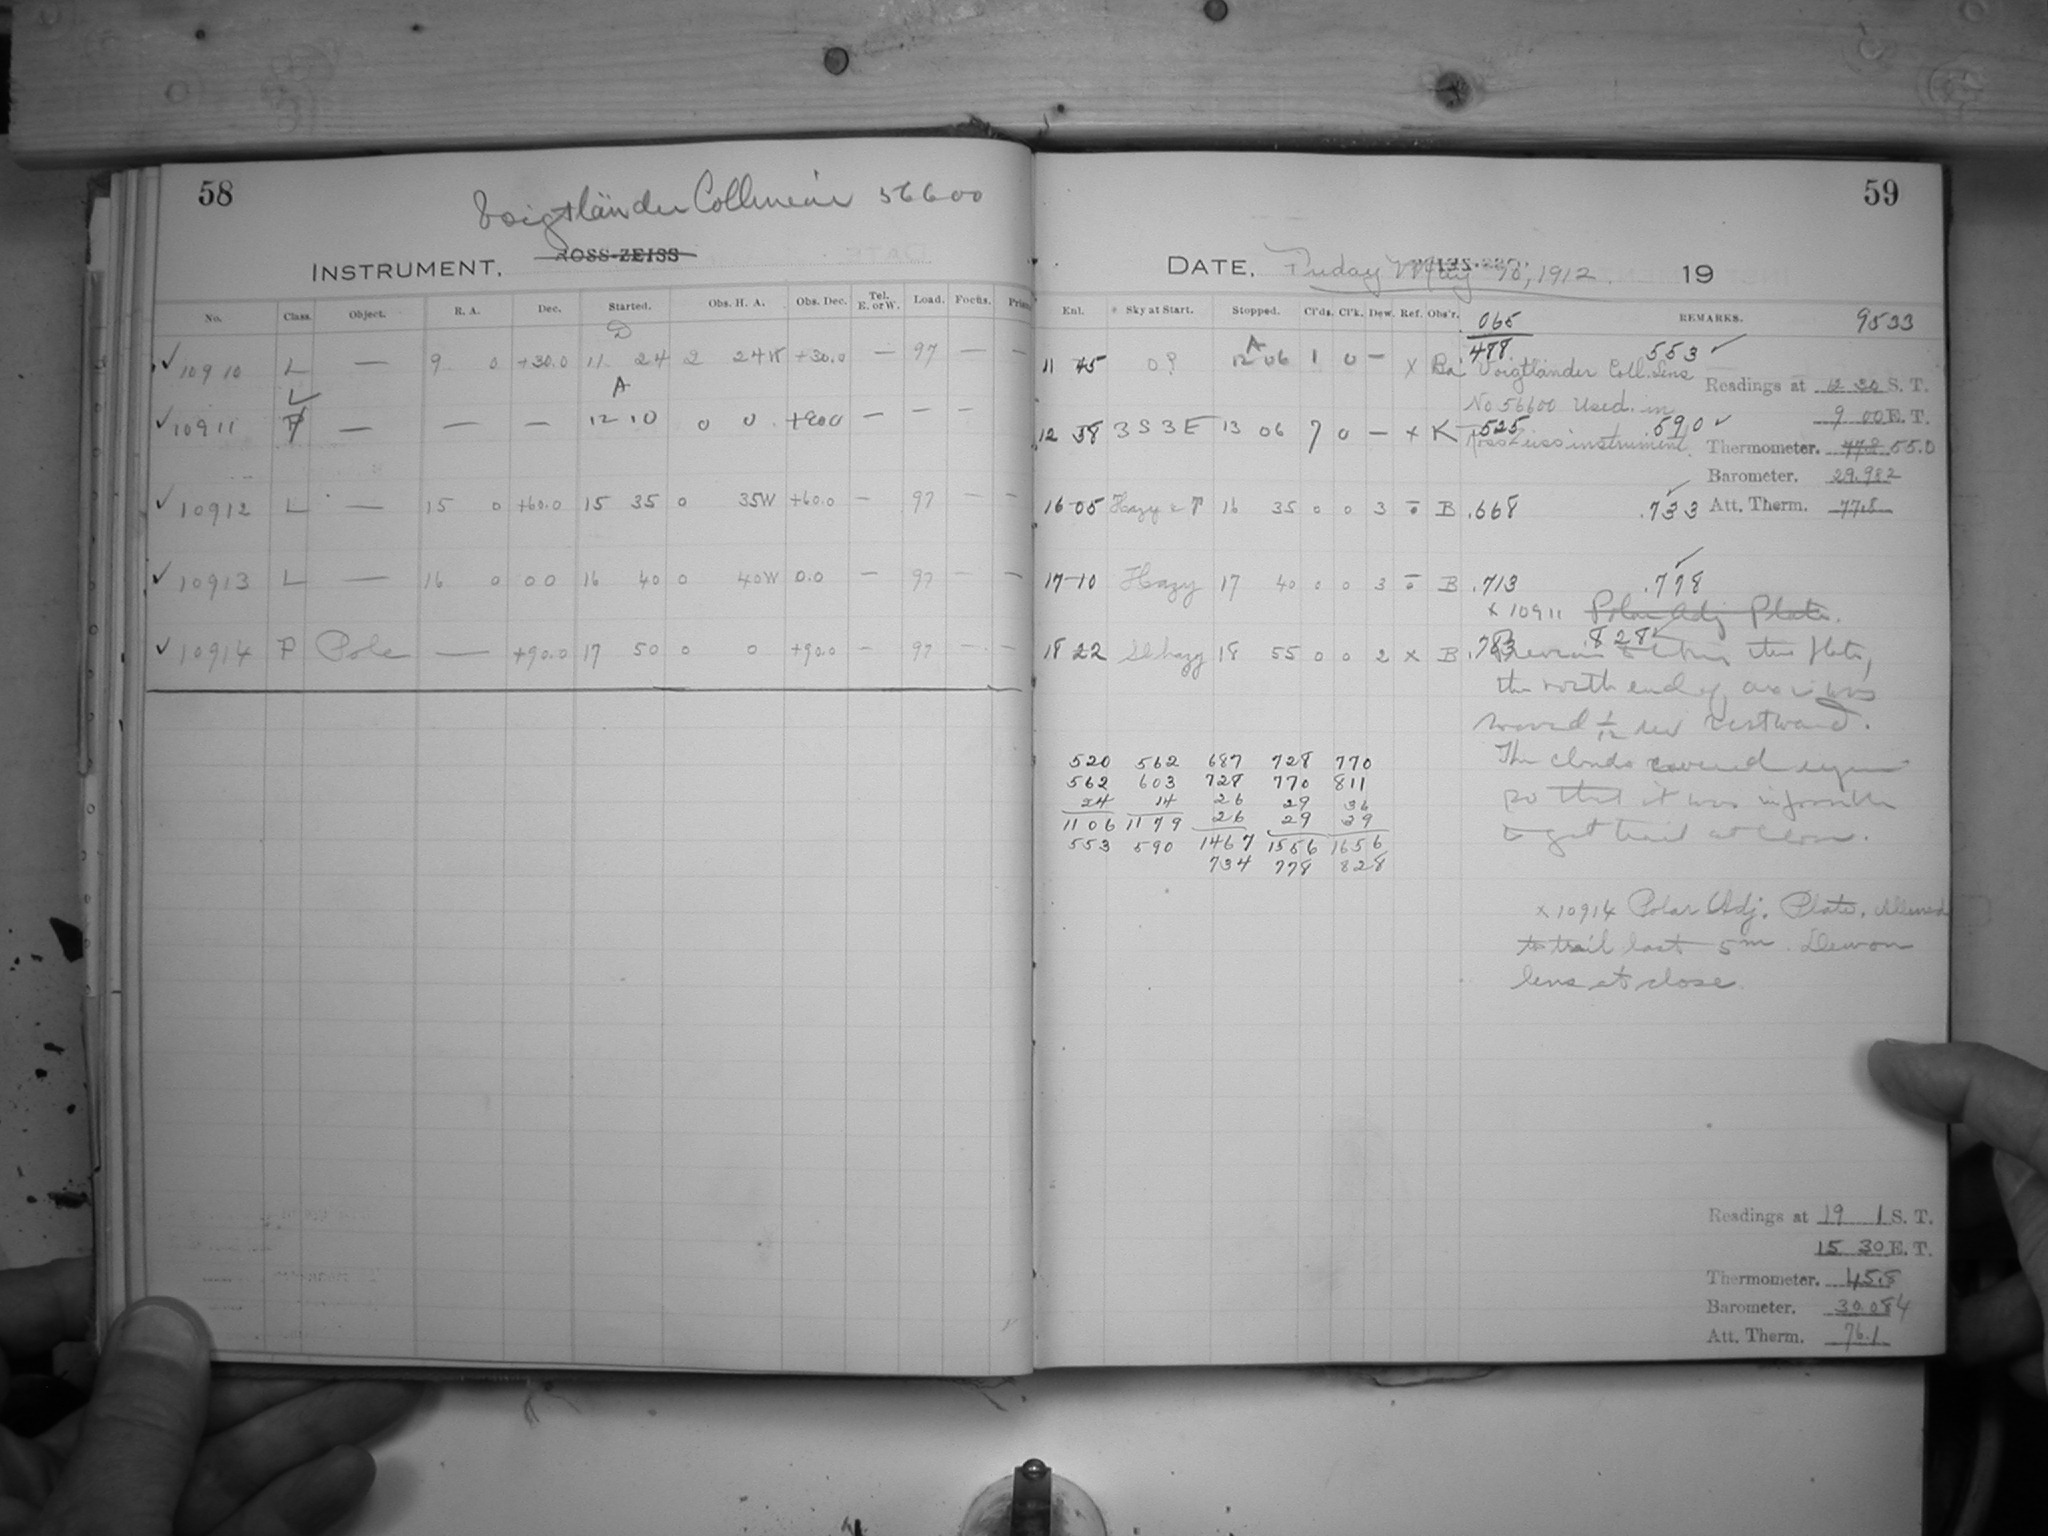 58
Voigtländer Collinear 56600
INSTRUMENT. ROSS-ZEISS
No. Class. Object. R. A. Dec. Started. Obs. H. A. Obs. Dec. Tel. E. or W. Load. Focus.
D
✓10910 L — 9 0 +30.0 11 24 2 24W +30.0 — 97 — —
L A
✓10911 P — — — 12 10 0 0 +90.0 — — —
✓10912 L — 15 0 +60.0 15 35 0 35W +60.0 — 97 — —
✓10913 L — 16 0 0 0 16 40 0 40W 0.0 — 97 — —
✓10914 P Pole — +90.0 17 50 0 0 +90.0 — 97 — —
59
DATE. Friday May 10, 1912. 19
Enl. Sky at Start. Stopped. Cl'ds. Cl'k. Dew. Ref. Obs'r. REMARKS. 9533
065
A 488 553 ✓
11 45 0? 12 06 1 0 — x Ba Voigtländer Coll. Lens
No 56600 Used in
12 38 3 S 3 E 13 06 7 0 — x K .525 .590 ✓
Ross Zeiss instrument.
Readings at 12 30 S. T.
9 00 E. T.
Thermometer. 77.8 55.0
Barometer. 29.982
Att. Therm. 77.8
16 05 Hazy 16 35 0 0 3 B .668 .733 ✓
17-10 Hazy 17 40 0 0 3 B .713 .778 ✓
x 10911 Polar Adj Plate.
18 22 Sl hazy 18 55 0 0 2 x B .783 .828 ✓
Previous to this plate,
the north end of axis was
moved 1/12 rev westward.
The clouds covered region
so that it was impossible
to get trail at close.
520 562 687 728 770
562 603 728 770 811
24 14 26 29 36
1106 1179 26 29 39
553 590 1467 1556 1656
734 778 828
x 10914 Polar Adj. Plate, Allowed
to trail last 5m. Dew on
lens at close.
Readings at 19 1 S. T.
15 30 E. T.
Thermometer. 45.8
Barometer. 30.084
Att. Therm. 76.1